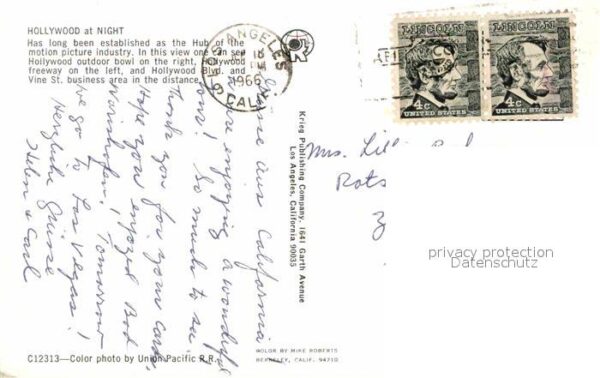 HOLLYWOOD at NIGHT
Has long been established as the Hub of the
motion picture industry. In this view one can see
Hollywood outdoor bowl on the right, Hollywood
freeway on the left, and Hollywood Blvd. and
Vine St. business area in the distance.
LOS ANGELES
1966
CALIF.
LINCOLN
4c
UNITED STATES
LINCOLN
4c
UNITED STATES
Grüsse aus California
are enjoying a wonderful
So much to see
Thank you for your card.
Hope you enjoyed Bad
Wörishofen! Tomorrow
we go to Las Vegas!
Herzliche Grüsse
Helen & Carl
Krieg Publishing Company, 1641 Garth Avenue
Los Angeles, California 90035
Mrs.
privacy protection
Datenschutz
C12313—Color photo by Union Pacific R.R.
COLOR BY MIKE ROBERTS
BERKELEY, CALIF. 94710